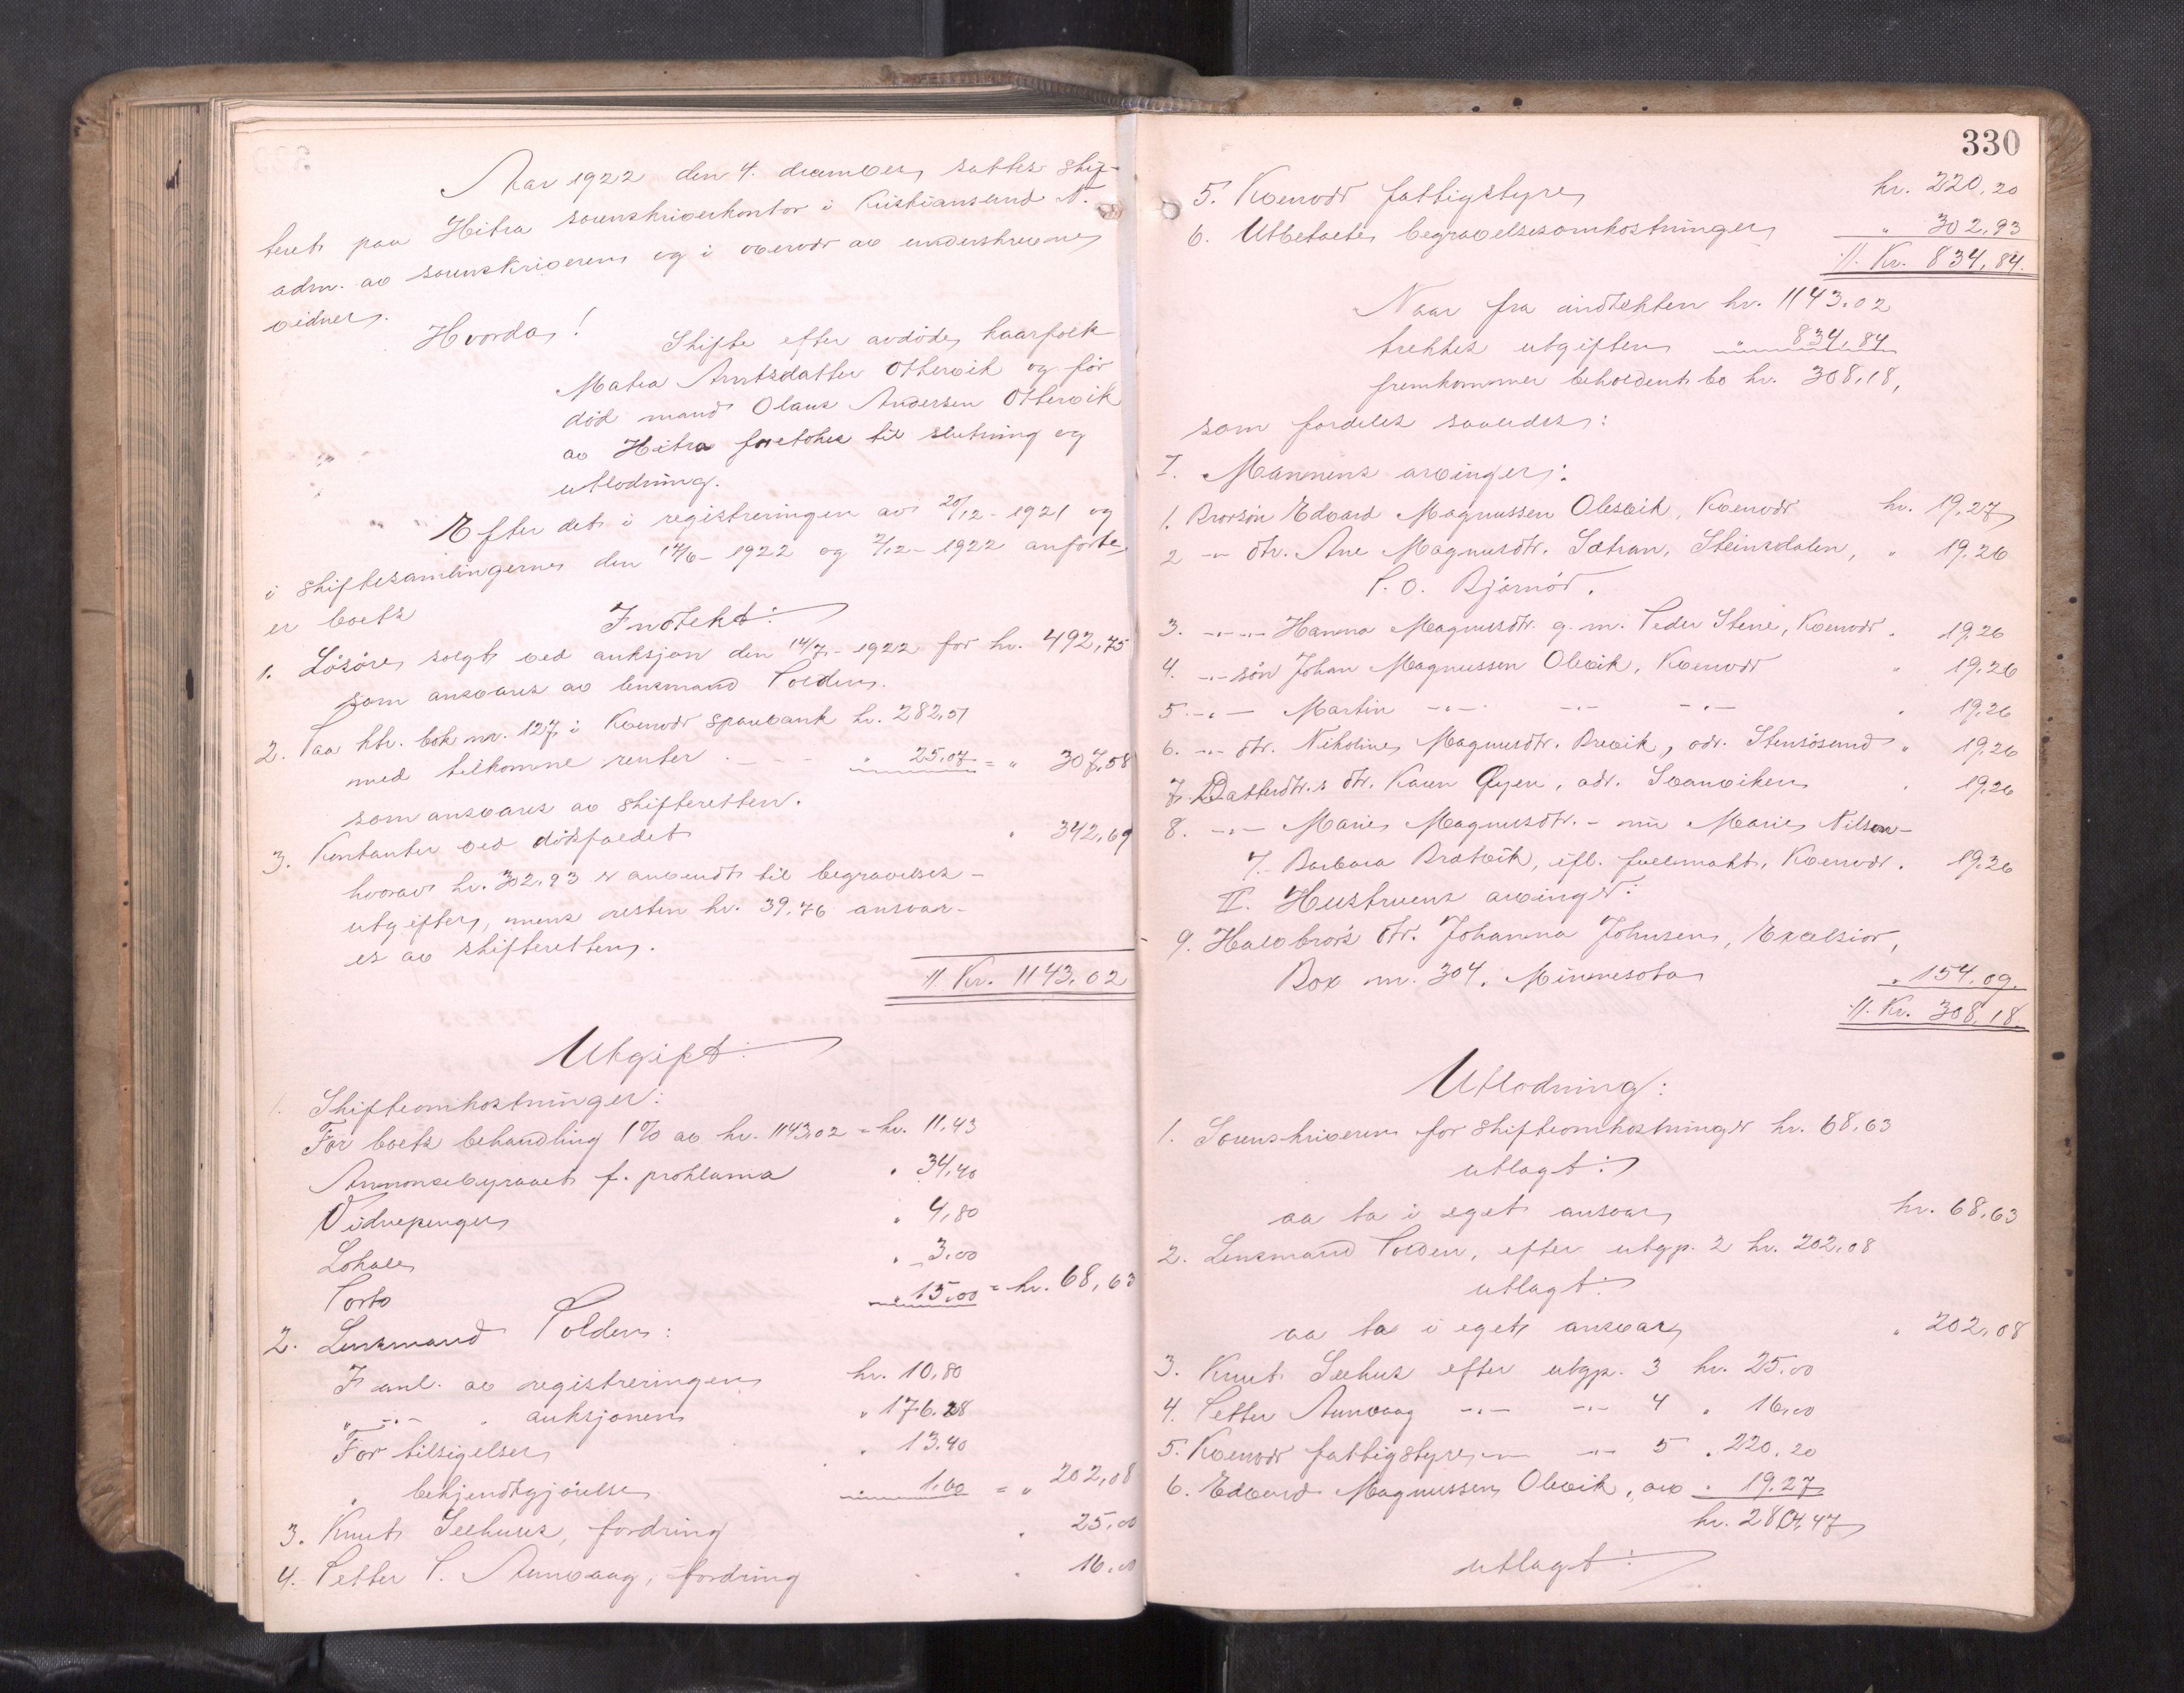 Aar 1922 den 4. december sattes skif-
teret paa Hitra sorenskriverkontor i Kristiansund N.
adm. av sorenskriveren og i overvær av underskrevne
vidner.
Hvorda!
Skifte efter avdøde kaarfolk
Matea Arntsdatter Ottervik og før
død mand Olaus Andersen Ottervik
av Hitra foretokes til slutning og
utlodning.
Efter det i registreringen av 20/12-1921 og
i skiftesamlingerne den 14/6-1922 og 2/12-1922 anførte
er boets
Indtekt:
1. Løsøre solgt ved auksjon den 14/7-1922 for kr. 492,75
som ansvares av lensmand Polden.
2. Paa ktr. bok nr. 127 i Kvenvær sparebank kr. 282,51
med tilkomne renter " 25,07 = " 307,58
som ansvares av skifteretten.
3. Kontanter ved dødsfaldet " 342,69
hvorav kr. 302,93 er anvendt til begravelses-
utgifter, mens resten kr. 39,76 ansvar-
es av skifteretten.
// Kr. 1143,02
Utgift:
1. Skifteomkostninger:
For boets behandling 1% av kr. 1143,02 = kr. 11,43
Annonsebyraaet f. proklama " 34,40
Vidnepenger " 4,80
Lokale " 3,00
Porto " 15,00 = kr. 68,63
2. Lensmand Polden:
I anl. av registreringen kr. 10,80
" -"- " auksjonen " 176.28
For tilsigelse " 13.40
" bekjendtgjørelse " 1,60 = " 202,08
3. Knut Seehuus, fordring " 25,00
4. Petter P. Aunvaag, fordring " 16,00
330
5. Kvenvær fattigstyre kr. 220,20
6. Utbetalte begravelsesomkostninger " 302,93
//. Kr. 834,84.
Naar fra indtekten kr. 1143.02
trekkes utgiften " 834,84
fremkommer beholdent bo kr. 308,18,
som fordeles saaledes:
I. Mannens arvinger:
1. Brorsøn Edvard Magnussen Olesvik, Kvenvær kr. 19,27
2 -"- dtr. Ane Magnusdtr. Sætran, Steinsdalen, " 19.26
P.O. Bjørnør.
3. -"- -"- Hanna Magnusdtr. g.m. Peder Stene, Kvenvær " 19.26
4. -"- søn Johan Magnussen Olvik, Kvenvær " 19,26
5 -"- Martin -"- -"- -"- " 19,26
6. -"- dtr. Nikoline Magnusdtr. Brevik, adr. Stensøsund " 19.26
7. Datterdtr.s dtr. Karen Øyen, adr. Svanviken " 19,26
8. -"- Marie Magnusdtr. - nu Marie Nilsen -
7. Barbara Bratvik, ifl. fuldmakt, Kvenvær. 19.26
II. Hustruens arvinger:
9. Halvbrors dtr. Johanna Johnsen, Excelsior,
Box nr. 304. Minnesota " 154.09.
//. Kr. 308,18.
Utlodning:
1. Sorenskriveren for skifteomkostninger kr. 68,63
utlagt:
aa ta i eget ansvar kr. 68,63
2. Lensmand Polden, efter utgp. 2 kr. 202,08
utlagt:
aa ta i eget ansvar " 202,08
3. Knut Seehus efter utgp. 3 kr. 25,00
4. Petter Aunvaag -"- -"- 4 " 16,00
5. Kvenvær fattigstyre -"- -"- 5 " 220,20
6. Edvard Magnussen Olvik, arv " 19.27
kr. 280,47
utlagt: